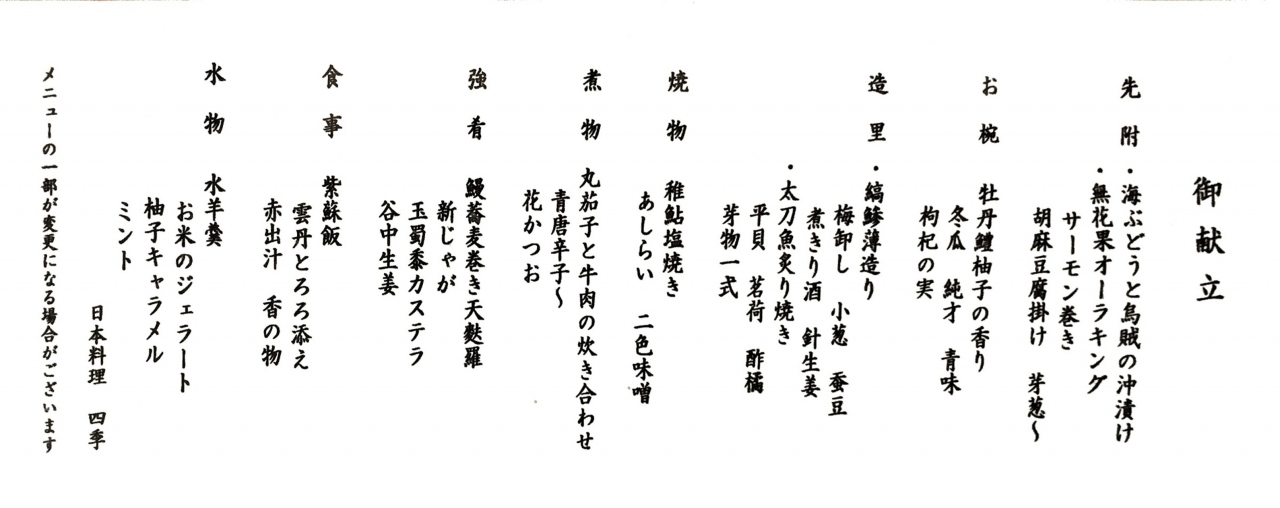 御献立
先附 ・海ぶどうと烏賊の沖漬け
・無花果オーラキング
サーモン巻き
胡麻豆腐掛け 芽葱～
お椀 牡丹鱧柚子の香り
冬瓜 純才 青味
枸杞の実
造里 ・縞鯵薄造り
梅卸し 小葱 蚕豆
煮きり酒 針生姜
・太刀魚炙り焼き
平貝 茗荷 酢橘
芽物一式
焼物 稚鮎塩焼き
あしらい 二色味噌
煮物 丸茄子と牛肉の炊き合わせ
青唐辛子～
花かつお
強肴 鰻蕎麦巻き天麩羅
新じゃが
玉蜀黍カステラ
谷中生姜
食事 紫蘇飯
雲丹とろろ添え
赤出汁 香の物
水物 水羊羹
お米のジェラート
柚子キャラメル
ミント
日本料理 四季
メニューの一部が変更になる場合がございます